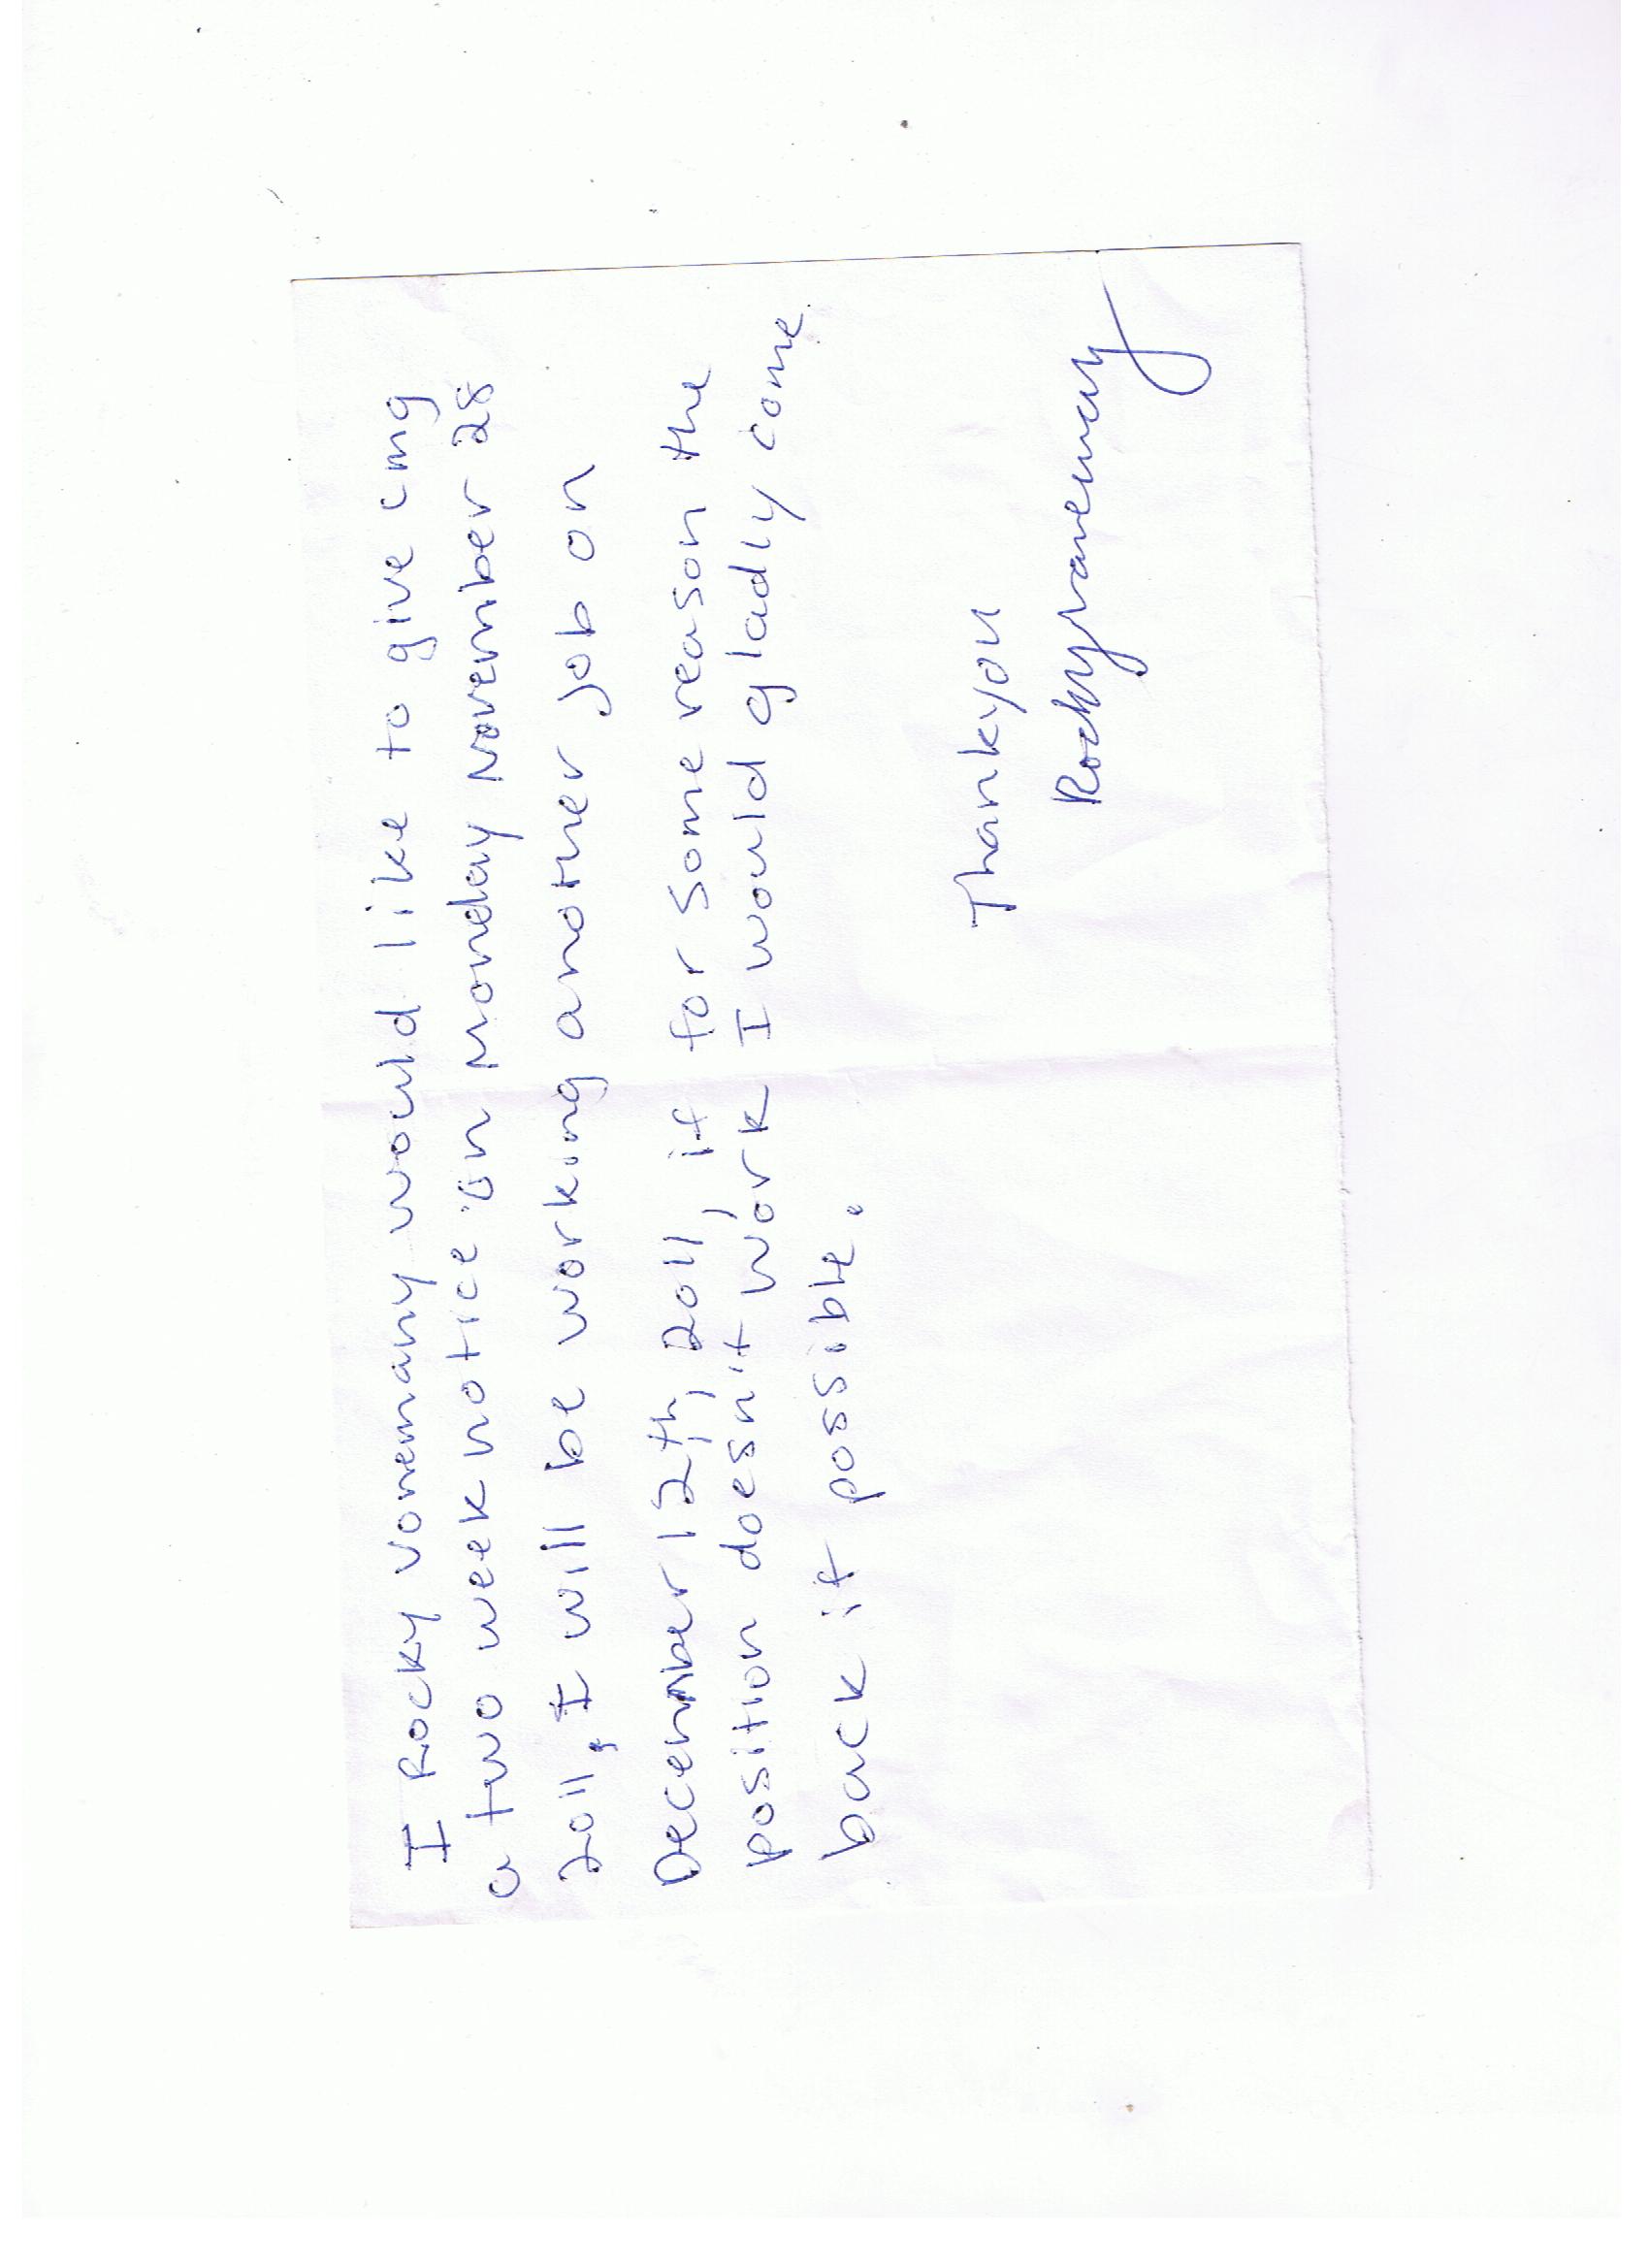 I Rocky vonemany would like to give cmg
a two week notice on monday November 28
2011, I will be working another job on
December 12th, 2011, if for some reason the
position doesn't work I would gladly come
back if possible.
Thankyou
Rocky vonemany